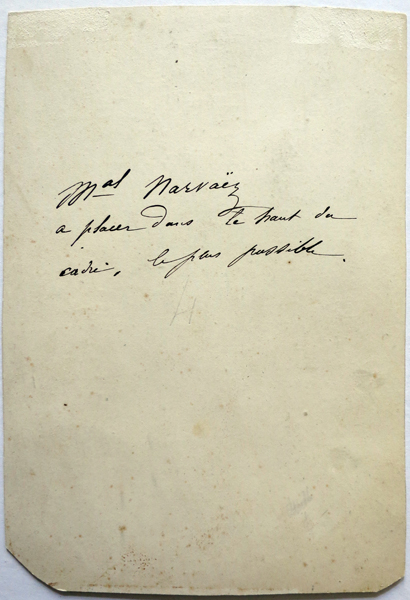 Mal Narvaëz
a placer dans le haut du
cadre, le plus possible.